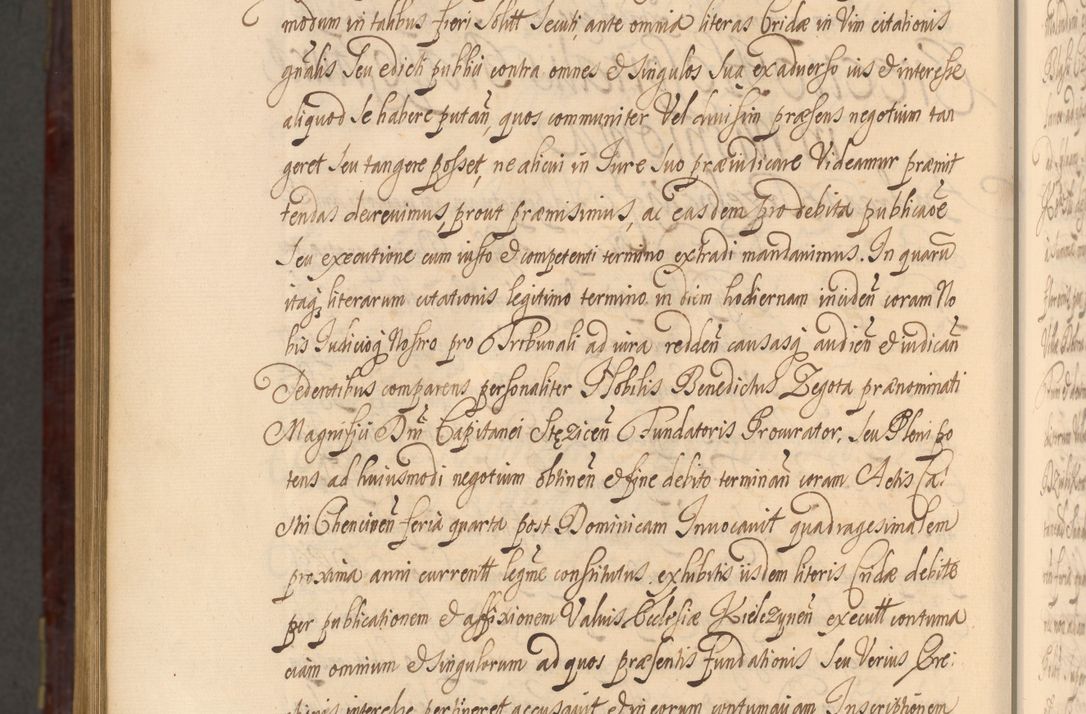 modum in talibus fieri solitt secuti, ante omnia literas Cridæ in Vim citationis
gñalis seu edicti publici contra omnes & singulos sua ex adverso ius & interesse
aliquod se habere putañ, quos communiter Vel divisim præsens negotium tan
geret seu tangere posset, ne alicui in Jure suo præiudicare Videamur præmit
tendas decrevimus, prout præmisimus, ac easdem pro debita publicaõe
seu executione cum iusto & competenti termino extradi mandavimus. In quarũ
itaq literarum citationis legitimo termino in diem hodiernam incideñ coram No
bis Judicioq Nostro pro Tribunali ad iura reddeñ causasq audieñ & iudicañ
Sedentibus comparens personaliter Nobilis Benedictus Zegota prænominati
Magnifici Dñi Capitanei Stęziceñ Fundatoris Procurator, seu Pleni po
tens ad huiusmodi negotium obtineñ & fine debito terminañ coram Actis Ca:
stri Chencineñ feria quarta post Dominicam Invocavit quadragesimalem
proxima anni currentt legñe constitutus, exhibitis iisdem literis Cridæ debite
per publicationem & affixionem Valvis Ecclesiæ Kielczyneñ executt contuma
ciam omnium & singulorum ad quos præsentis fundationis seu Verius Ere:
ctionis interesse pertineret accusavit & in eorum contumaciam Inscriptionem